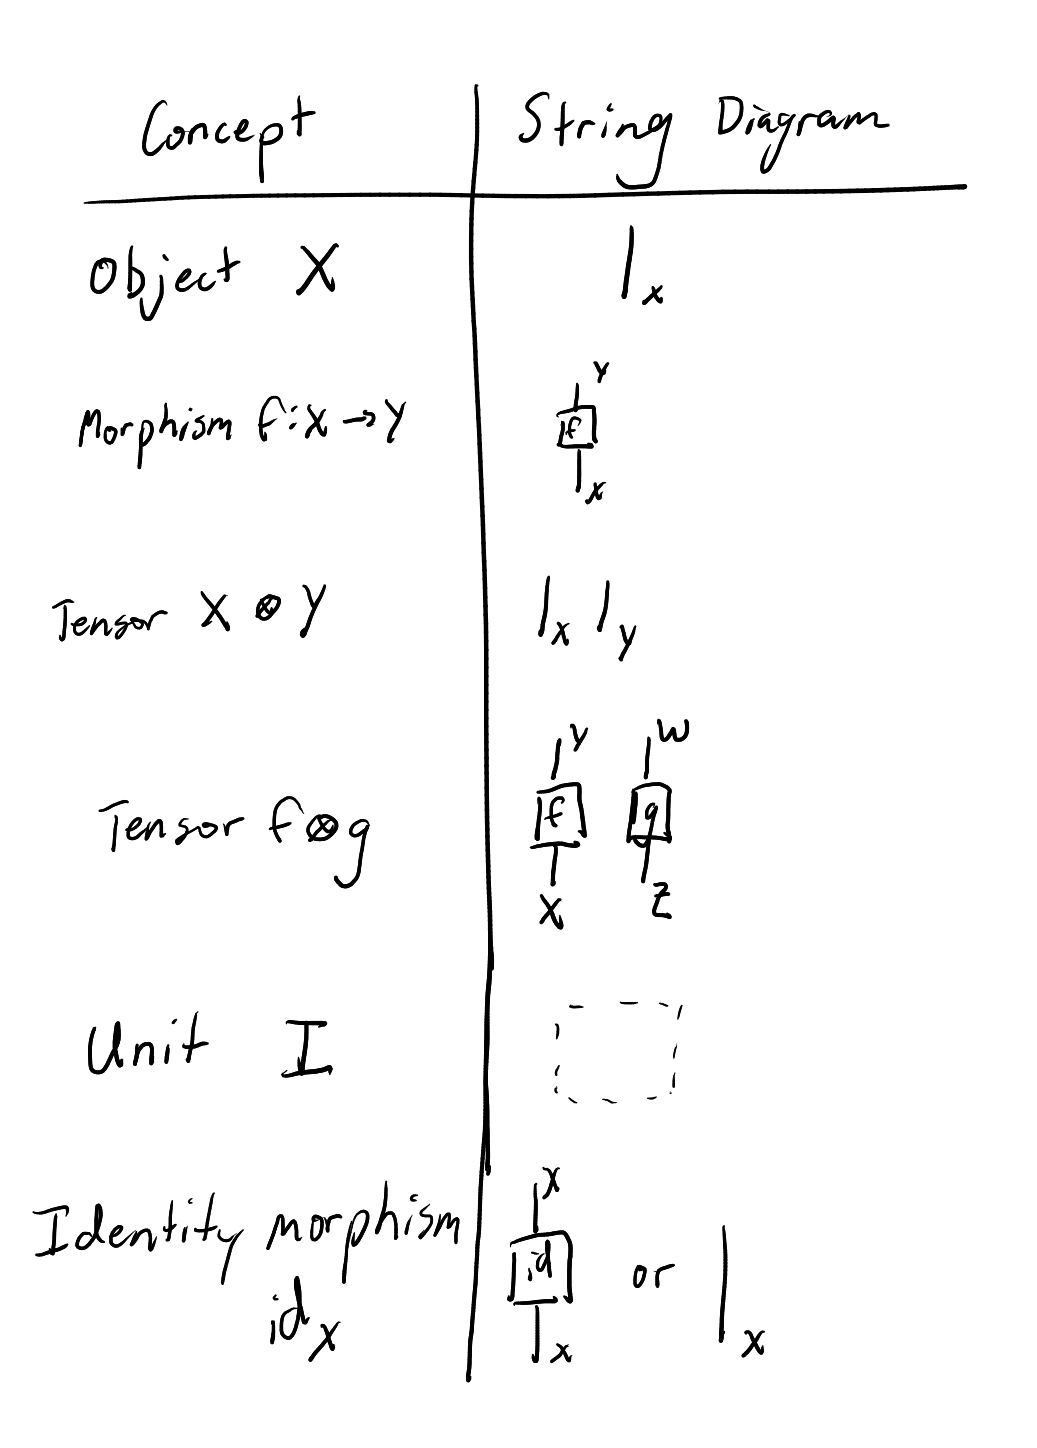 Concept String Diagram
Object X
x
Morphism f:X→Y
Y
f
x
Tensor X ⊗ Y
x y
Tensor f⊗g
Y W
f g
X Z
Unit I
Identity morphism
id x
X
id or
x x